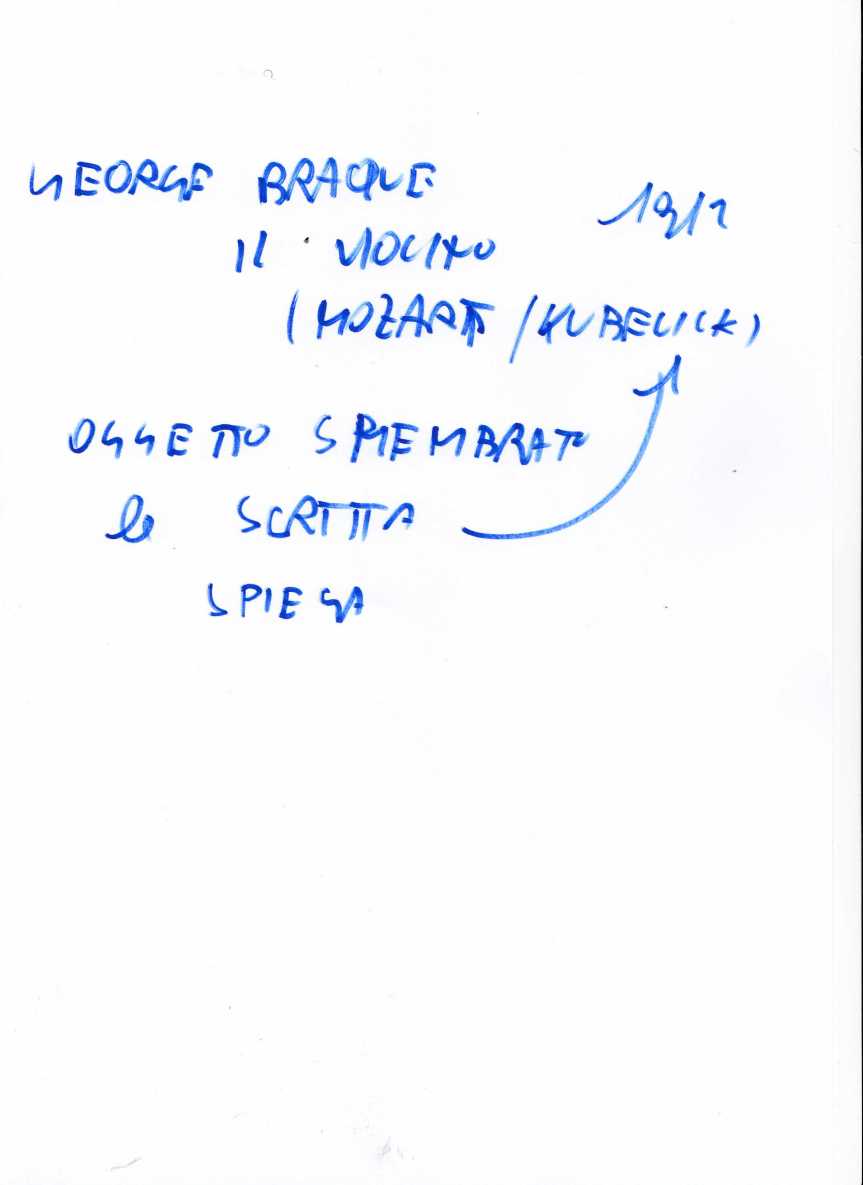 GEORGE BRAQUE
1912
IL VIOLINO
(MOZART/KUBELICK)
OGGETTO SMEMBRATO
la SCRITTA
SPIEGA